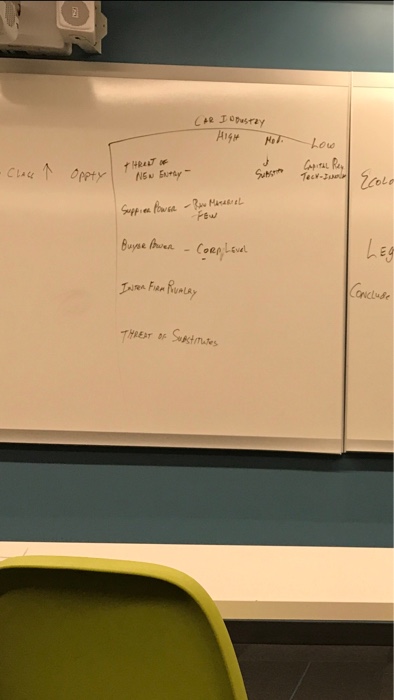 CAR INDUSTRY
HIGH Mod. Low
Class ↑ Oppty
THREAT OF
NEW ENTRY -
CAPITAL
TECH-
Supplier Power - Raw Material
FEW
Buyer Power - Corp/Level
INTER FIRM RIVALRY
THREAT OF SUBSTITUTES
Ecolo
LEG
Conclude